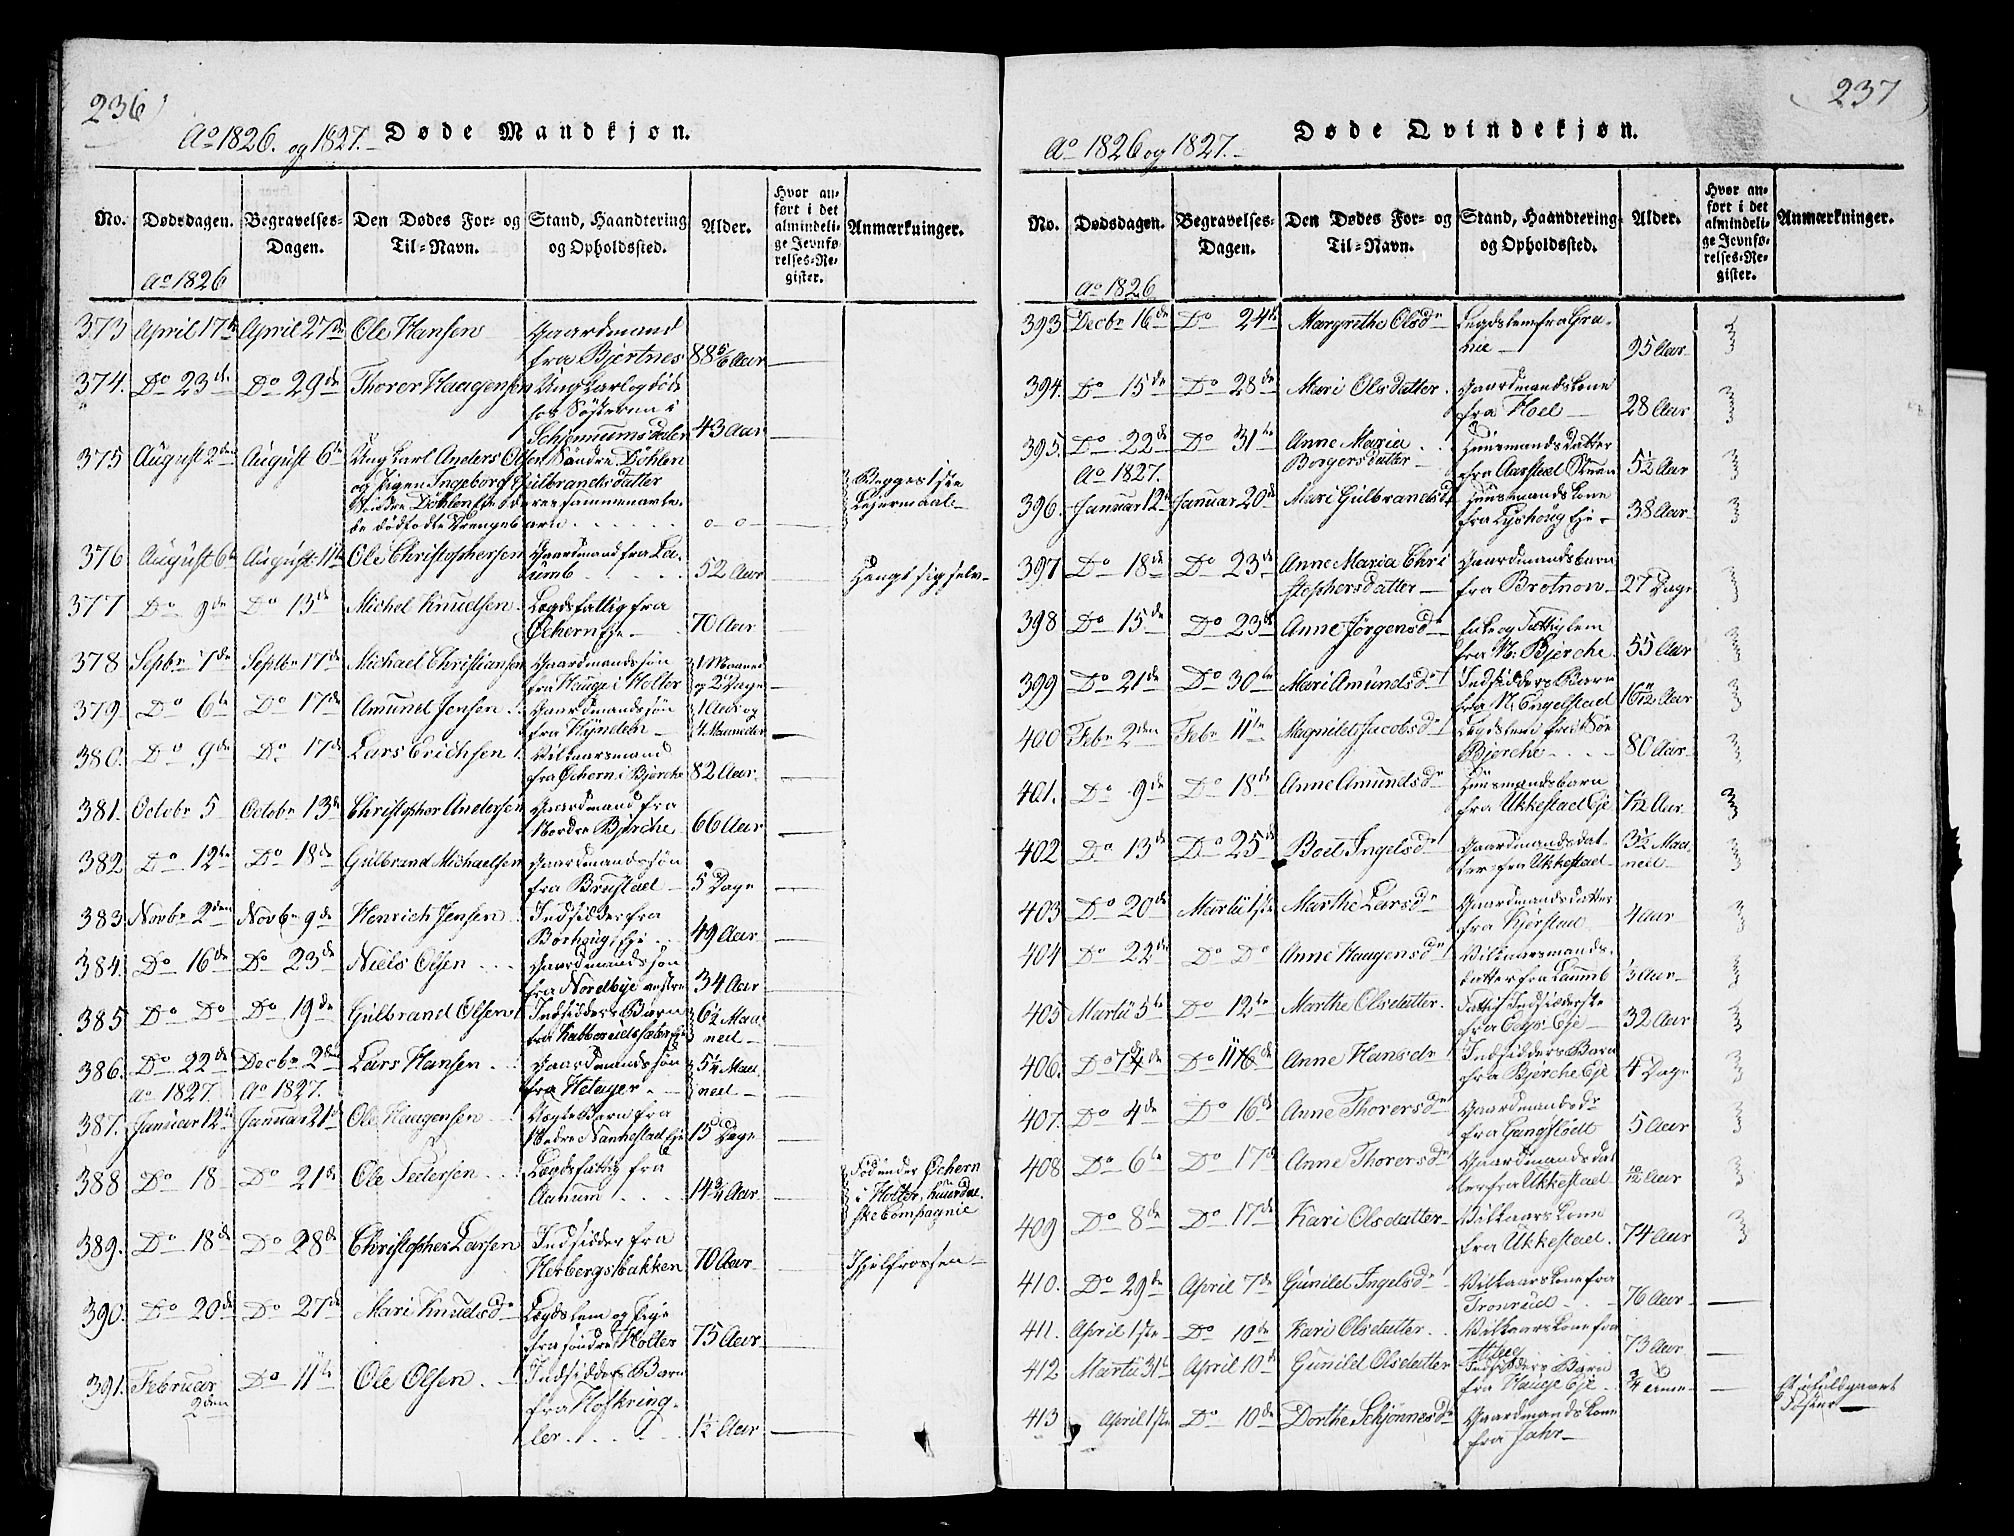 236
Aº 1826. og 1827. Døde Mandkjøn.
No. Dødsdagen. Begravelses-Dagen. Den Dødes For- og Til-Navn. Stand, Haandtering og Opholdssted. Alder. Hvor anført i det almindelige Jevnførelses-Register. Anmærkninger.
Aº 1826
373 April 17de April 27de Ole Hansen Gaardmand
fra Bjertnes 88 5/6 Aar
374. Do 23de Do 29de Thorer Haagensen Ung Karl og døde
hos Søsteren i
Schjennumsdalen 43 Aar
375 August 2den August 6te Ung Karl Anders Olsen Søndre Døhlen
og Pigen Ingeborg Gulbrandsdatter
Søndre Døhlen Eje deres sammenavle-
de dødfødte Drengebarn - o - o -
Begges 1ste
Lejermaal
376 August 6te August 11te Ole Christophersen Gaardmand fra La-
umb 52 Aar Hængt sig selv
377 Do 9de Do 13de Michel Knudsen Lægdsfattig fra
Øchern Eje 70 Aar
378 Septbr 7de Septbr 17de Michael Christiansen Gaardmandssøn
fra Hauge i Holter 1 Maaned
og 2 Dage
379 Do 6te Do 17de Amund Jensen Gaardmandssøn
fra Hynden 1 Aar og
4 Maaneder
380. Do 9de Do 17de Lars Erichsen Vilkaarsmand
fra Øchern i Bjerche 82 Aar
381. Octobr 5 Octobr 13de Christopher Andersen Gaardmand fra
Nordre Bjerche 66 Aar
382 Do 12te Do 18de Gulbrand Michaelsen Gaardmandssøn
fra Brustad 5 Dage
383 Novbr 2den Novbr 9de Henrich Jensen Indsidder fra
Borhoug Eje 49 Aar
384. Do 16de Do 23de Niels Olsen Gaardmandssøn
fra Nordbye vestre 34 Aar
385 Do Do Do 19de Gulbrand Olsen Indsidders Barn
6½ Maa-
ned
386. Do 22de Decbr 2den Lars Hansen Gaardmandssøn
fra Hotager 5¼ Maa-
ned
Aº 1827. Aº 1827.
387. Januar 12te Januar 21de Ole Haagensen Uægte Barn fra
Nedre Nannestad Eje 15 Dage
388 Do 18 Do 21de Ole Pedersen Lægdsfattig fra
Aanum 14¾ Aar
Fød under Øchern
i Holter, Hurdal-
ske Compagnie
389. Do 18de Do 28de Christopher Larsen Indsidder fra
Herbergsbakken 70 Aar Ihjelfrossen
390. Do 20de Do 27de Mari Knudsdr Lægdslem og Pige
fra søndre Holter 75 Aar
391. Februar
2den Do 11te Ole Olsen Indsidders Barn
fra Hofkring-
ler 1½ Aar
237
Aº 1826 og 1827. Døde Qvindekjøn.
No. Dødsdagen. Begravelses-Dagen. Den Dødes For- og Til-Navn. Stand, Haandtering og Opholdssted. Alder. Hvor anført i det almindelige Jevnførelses-Register. Anmærkninger.
Aº 1826
393 Decbr 16de Do 24de Margrethe Olsdr Legdslem fra Gra-
nie 95 Aar
394. Do 15de Do 28de Mari Olsdatter Gaardmandskone
fra Hoel 28 Aar
395. Do 22de Do 31te Anne Maria
Borgersdatter Huusmandsdatter
fra Aarstad 5½ Aar
Aº 1827.
396. Januar 12te Januar 20de Mari Gulbrandsdr Huusmandskone
fra Lyshoug Eje 38 Aar
397 Do 18de Do 23de Anne Maria Chri-
stophersdatter Gaardmandsbarn
fra Brotnow 27 Dage
398 Do 15de Do 23de Anne Jørgensdr Enke og Fattiglem
fra N. Bjerche 55 Aar
399 Do 21de Do 30te Mari Amundsdr Indsidders Barn
fra N. Engelstad 16 11/12 Aar
400 Febr 2den Febr 11te Magnild Jacobsdr Legdslem fra Sør
Bjerche 80 Aar
401. Do 9de Do 18de Anne Amundsdr Huusmandsbarn
fra Ukkestad Eje 7½ Aar
402 Do 13de Do 25de Boel Ingelsdr Gaardmandsdat-
ter fra Ukkestad 3½ Maa-
ned
403 Do 20de Martii 1ste Marthe Larsdr Gaardmandsdatter
fra Kjerstad 4 Aar
404 Do 22de Do Do Anne Haagensdr Vilkaarsmands-
datter fra Laumb ⅓ Aar
405 Martii 5te Do 12te Marthe Olsdatter Fattig Indsidderske
fra Eje 32 Aar
406. Do Do Anne Hansdr Indsidders Barn
fra Bjerche Eje 4 Dage
407. Do 4de Do 16de Anne Thorersdr Gaardmandsdr
fra Gangstødt 5 Aar
408. Do 6te Do 17de Anne Thorersdr Gaardmandsdat-
ter fra Ukkestad 10/12 Aar
409 Do 8de Do 17de Kari Olsdatter Vilkaarskone
fra Ukkestad 74 Aar
410. Do 29de April 7de Gunild Ingelsdr Vilkaarskone fra
Tronrud 76 Aar
411. April 1ste Do 10de Kari Olsdatter Vilkaarskone fra
73 Aar
412 Martii 31te April 10de Gunild Olsdatter Indsidders Barn
fra Hauge Eje ¾
413 April 1ste Do 10de Dorthe Schjønnesdr Gaardmandskone
fra Jahr